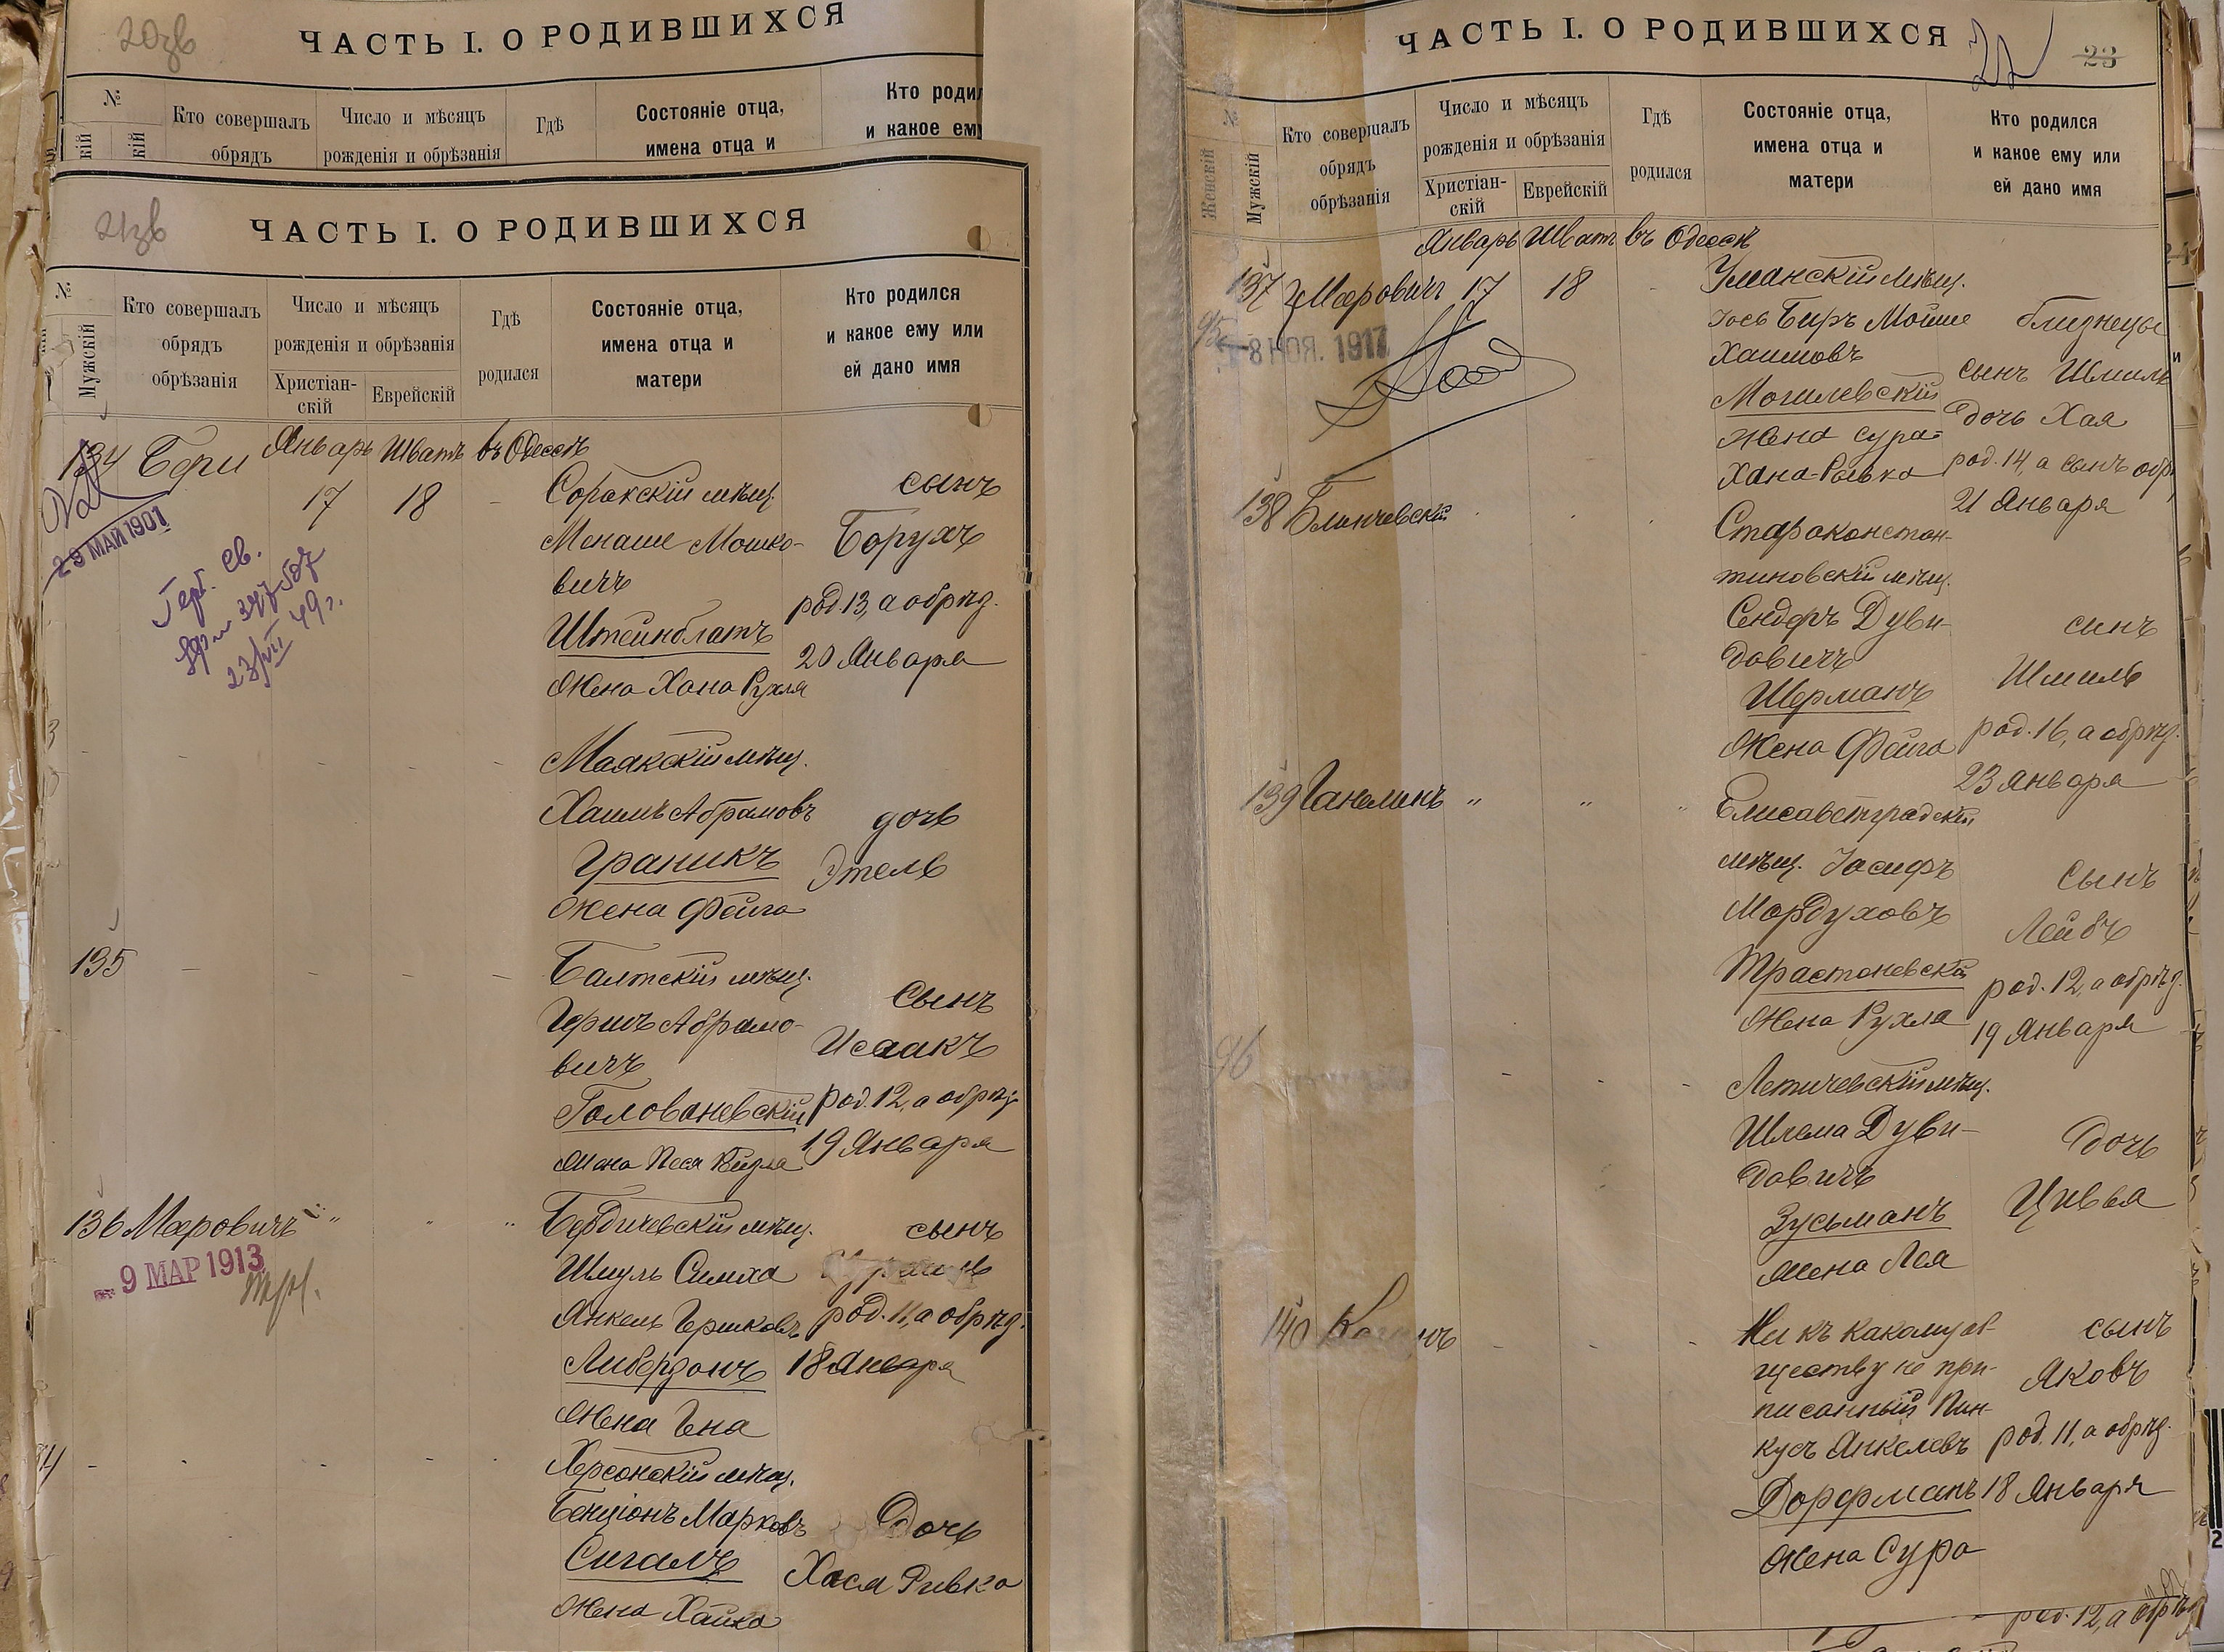 20зв
ЧАСТЬ I. О РОДИВШИХСЯ
№
Кто совершалъ
обрядъ
Число и мѣсяцъ
рожденія и обрѣзанія
Гдѣ
Состояніе отца,
имена отца и
Кто родил
и какое ем
кій
кій
21зв
ЧАСТЬ I. О РОДИВШИХСЯ
№
Мужскій
Кто совершалъ
обрядъ
обрѣзанія
Число и мѣсяцъ
рожденія и обрѣзанія
Христіан-
скій
Еврейскій
Гдѣ
родился
Состояніе отца,
имена отца и
матери
Кто родился
и какое ему или
ей дано имя
Январь Шватъ въ Одессѣ
134 Бери
17 18 -
29 МАЙ 1901
Герб. св.
49 г.
Сорокскій мѣщ.
Менаше Мошко-
вичъ
Штейнблатъ
Жена Хана Рухля
сынъ
Борухъ
род. 13, а обрѣз.
20 Января
Маякскій мѣщ.
Хаимъ Абрамовъ
Граникъ
Жена Фейга
дочь
Этель
135
Балтскій мѣщ.
Гершъ Абрамо-
вичъ
Голованевскій
Жена Песя Бейла
Сынъ
Исаакъ
род. 12, а обрѣз.
19 Января
136 Меровичъ " " "
9 МАР 1913
Бердичевскій мѣщ.
Шмуль Симха
Янкель Гершковъ
Либерзонъ
Жена Гена
сынъ
род. 11, а обрѣз.
18 Января
Херсонскій мѣщ.
Бенціонъ Марковъ
Сигалъ
Жена Хайка
Дочь
Хася Ривка
ЧАСТЬ I. О РОДИВШИХСЯ
22
23
№
Женскій
Мужскій
Кто совершалъ
обрядъ
обрѣзанія
Число и мѣсяцъ
рожденія и обрѣзанія
Христіан-
скій
Еврейскій
Гдѣ
родился
Состояніе отца,
имена отца и
матери
Кто родился
и какое ему или
ей дано имя
Январь Шватъ въ Одессѣ
137 Меровичъ 17 18 -
95
8 НОЯ. 1917
Уманскій мѣщ.
Іось Беръ Мойше
Хаимовъ
Могилевскій
Жена Сура-
Хана-Ривка
близнецы
сынъ Шмиль
дочь Хая
род. 14, а сынъ обр.
21 Января
138 Блинчевскій
Староконстан-
тиновскій мѣщ.
Сендеръ Дуви-
довичъ
Шерманъ
Жена Фейга
сынъ
Шмиль
род. 16, а обрѣз.
23 Января
139 Ганелинъ " " "
Елисаветградскій
мѣщ. Іосифъ
Мордуховъ
Трастоневскій
Жена Рухля
Сынъ
Лейбъ
род. 12, а обрѣз.
19 Января
96
Летичевскій мѣщ.
Шлема Дуви-
довичъ
Зусьманъ
Жена Лея
Дочь
Цивья
140
Ни къ какому об-
ществу не при-
писанный Пин-
кусъ Янкелевъ
Дорфманъ
Жена Сура
сынъ
Яковъ
род. 11, а обрѣз.
18 Января
род. 12, а обрѣз.